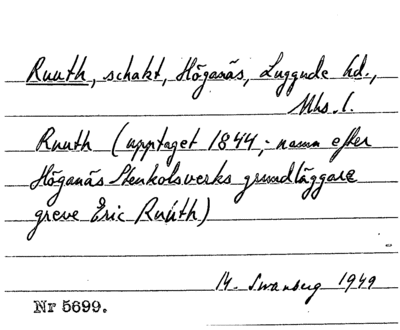 Ruuth, schakt, Höganäs, Luggude hd.,
Mhs. l.
Ruuth (upptaget 1844; namn efter
Höganäs Stenkolsverks grundläggare
greve Eric Ruuth)
H. Swanberg 1949
Nr 5699.